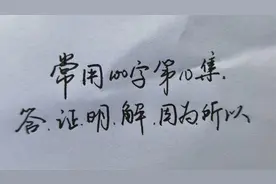 常用100字第10集.
答.证.明.解.因为.所以